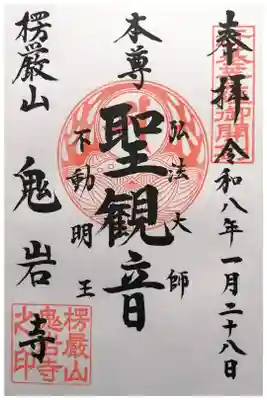 奉拝 令和八年一月二十八日
本尊
聖観音
弘法大師
不動明王
楞厳山 鬼岩寺
楞嚴山
鬼岩寺
之印